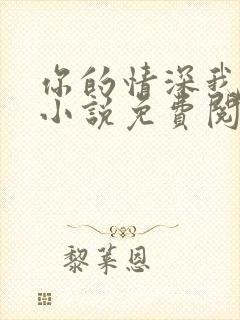 你的情深我
小说免费阅
黎莱恩